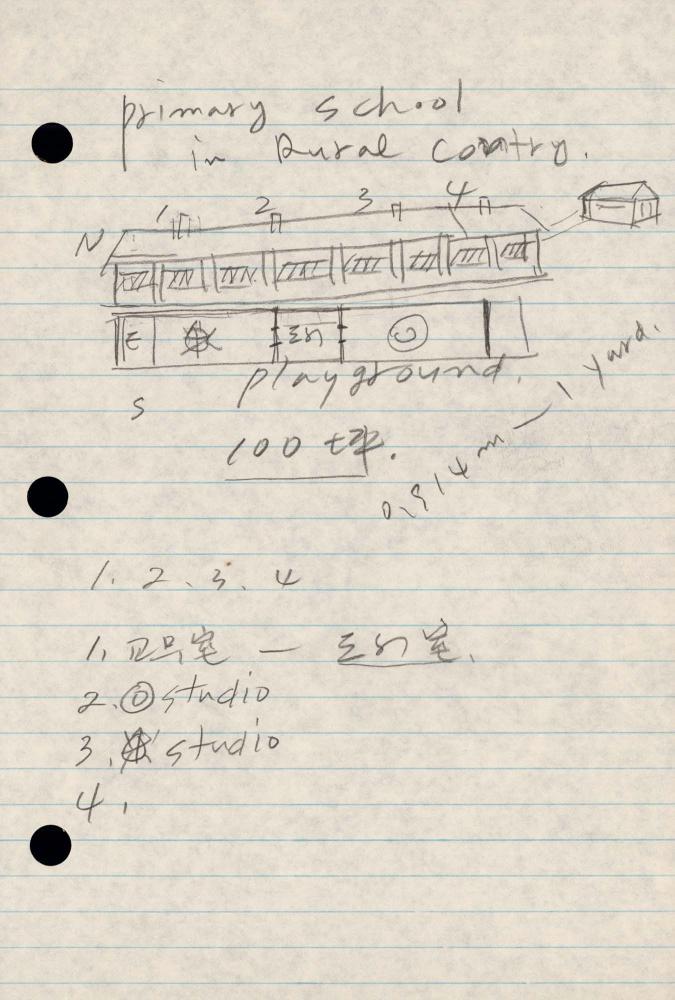 primary school
in Rural contry.
1 2 3 4
N
E
playground.
S
100 坪.
0.914m — 1 yard.
1. 2. 3. 4
1. 교무室 —
2. ◎ studio
3. studio
4.